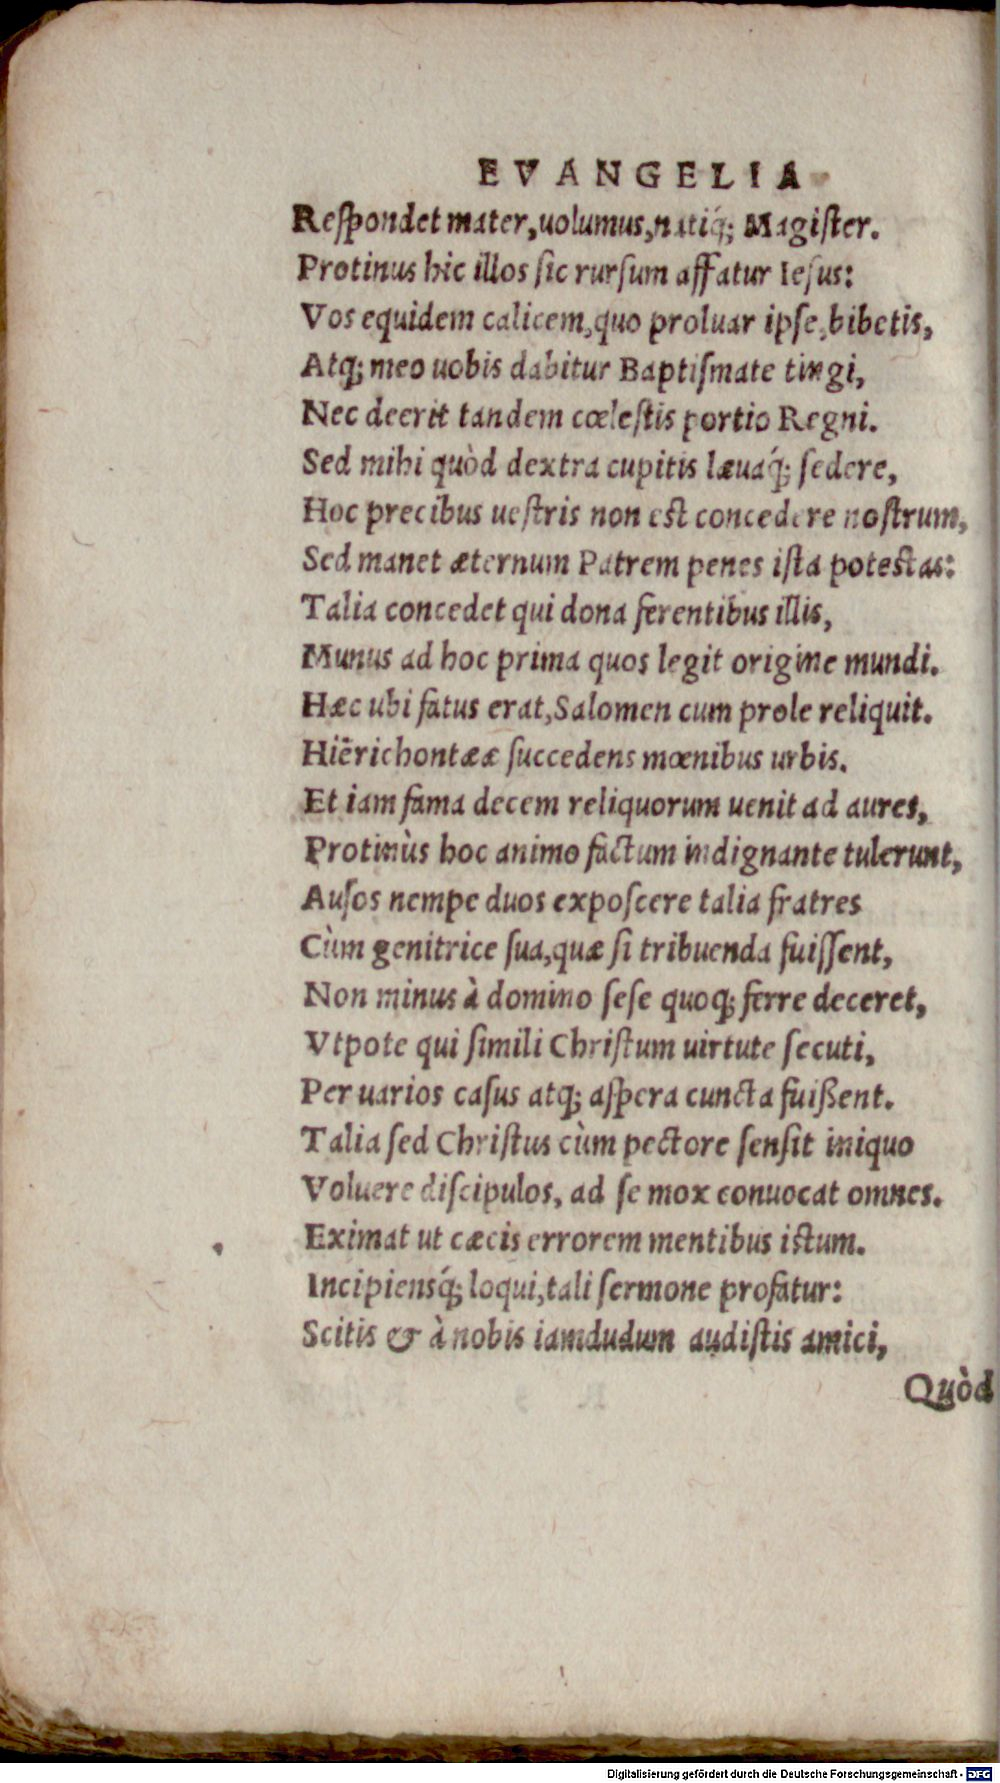 EVANGELIA
Reſpondet mater, uolumus, natiq́; Magiſter.
Protinus hic illos ſic rurſum affatur Ieſus:
Vos equidem calicem, quo proluar ipſe, bibetis,
Atq; meo uobis dabitur Baptiſmate tingi,
Nec deerit tandem cœleſtis portio Regni.
Sed mihi quòd dextra cupitis læuaq́; ſedere,
Hoc precibus ueſtris non eſt concedere noſtrum,
Sed manet æternum Patrem penes iſta poteſtas:
Talia concedet qui dona ferentibus illis,
Munus ad hoc prima quos legit origine mundi.
Hæc ubi fatus erat, Salomen cum prole reliquit.
Hiērichontææ ſuccedens mœnibus urbis.
Et iam fama decem reliquorum uenit ad aures,
Protinùs hoc animo factum indignante tulerunt,
Auſos nempe duos expoſcere talia fratres
Cùm genitrice ſua, quæ ſi tribuenda fuiſſent,
Non minus à domino ſeſe quoq; ferre deceret,
Vtpote qui ſimili Chriſtum uirtute ſecuti,
Per uarios caſus atq; aſpera cuncta fuißent.
Talia ſed Chriſtus cùm pectore ſenſit iniquo
Voluere diſcipulos, ad ſe mox conuocat omnes.
Eximat ut cæcis errorem mentibus iſtum.
Incipiensq́; loqui, tali ſermone profatur:
Scitis & à nobis iamdudum audiſtis amici,
Quòd
Digitalisierung gefördert durch die Deutsche Forschungsgemeinschaft - DFG